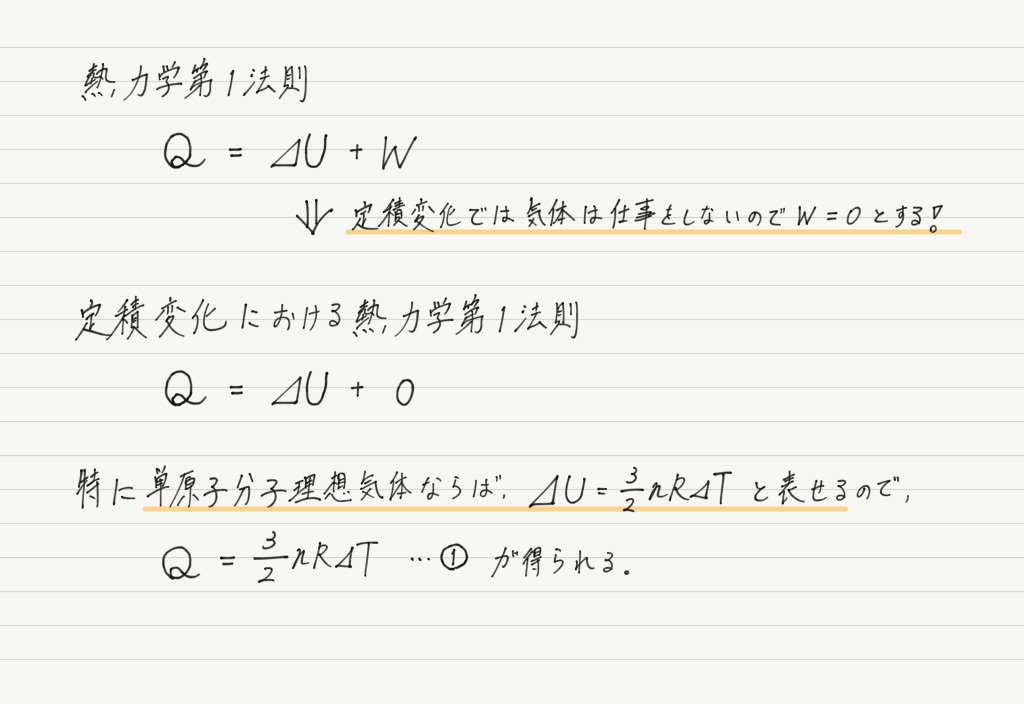 熱力学第1法則
Q = ΔU + W
⇓ 定積変化では気体は仕事をしないのでW=0とする!
定積変化における熱力学第1法則
Q = ΔU + 0
特に単原子分子理想気体ならば、ΔU = 3/2 nRΔT と表せるので、
Q = 3/2 nRΔT …① が得られる。